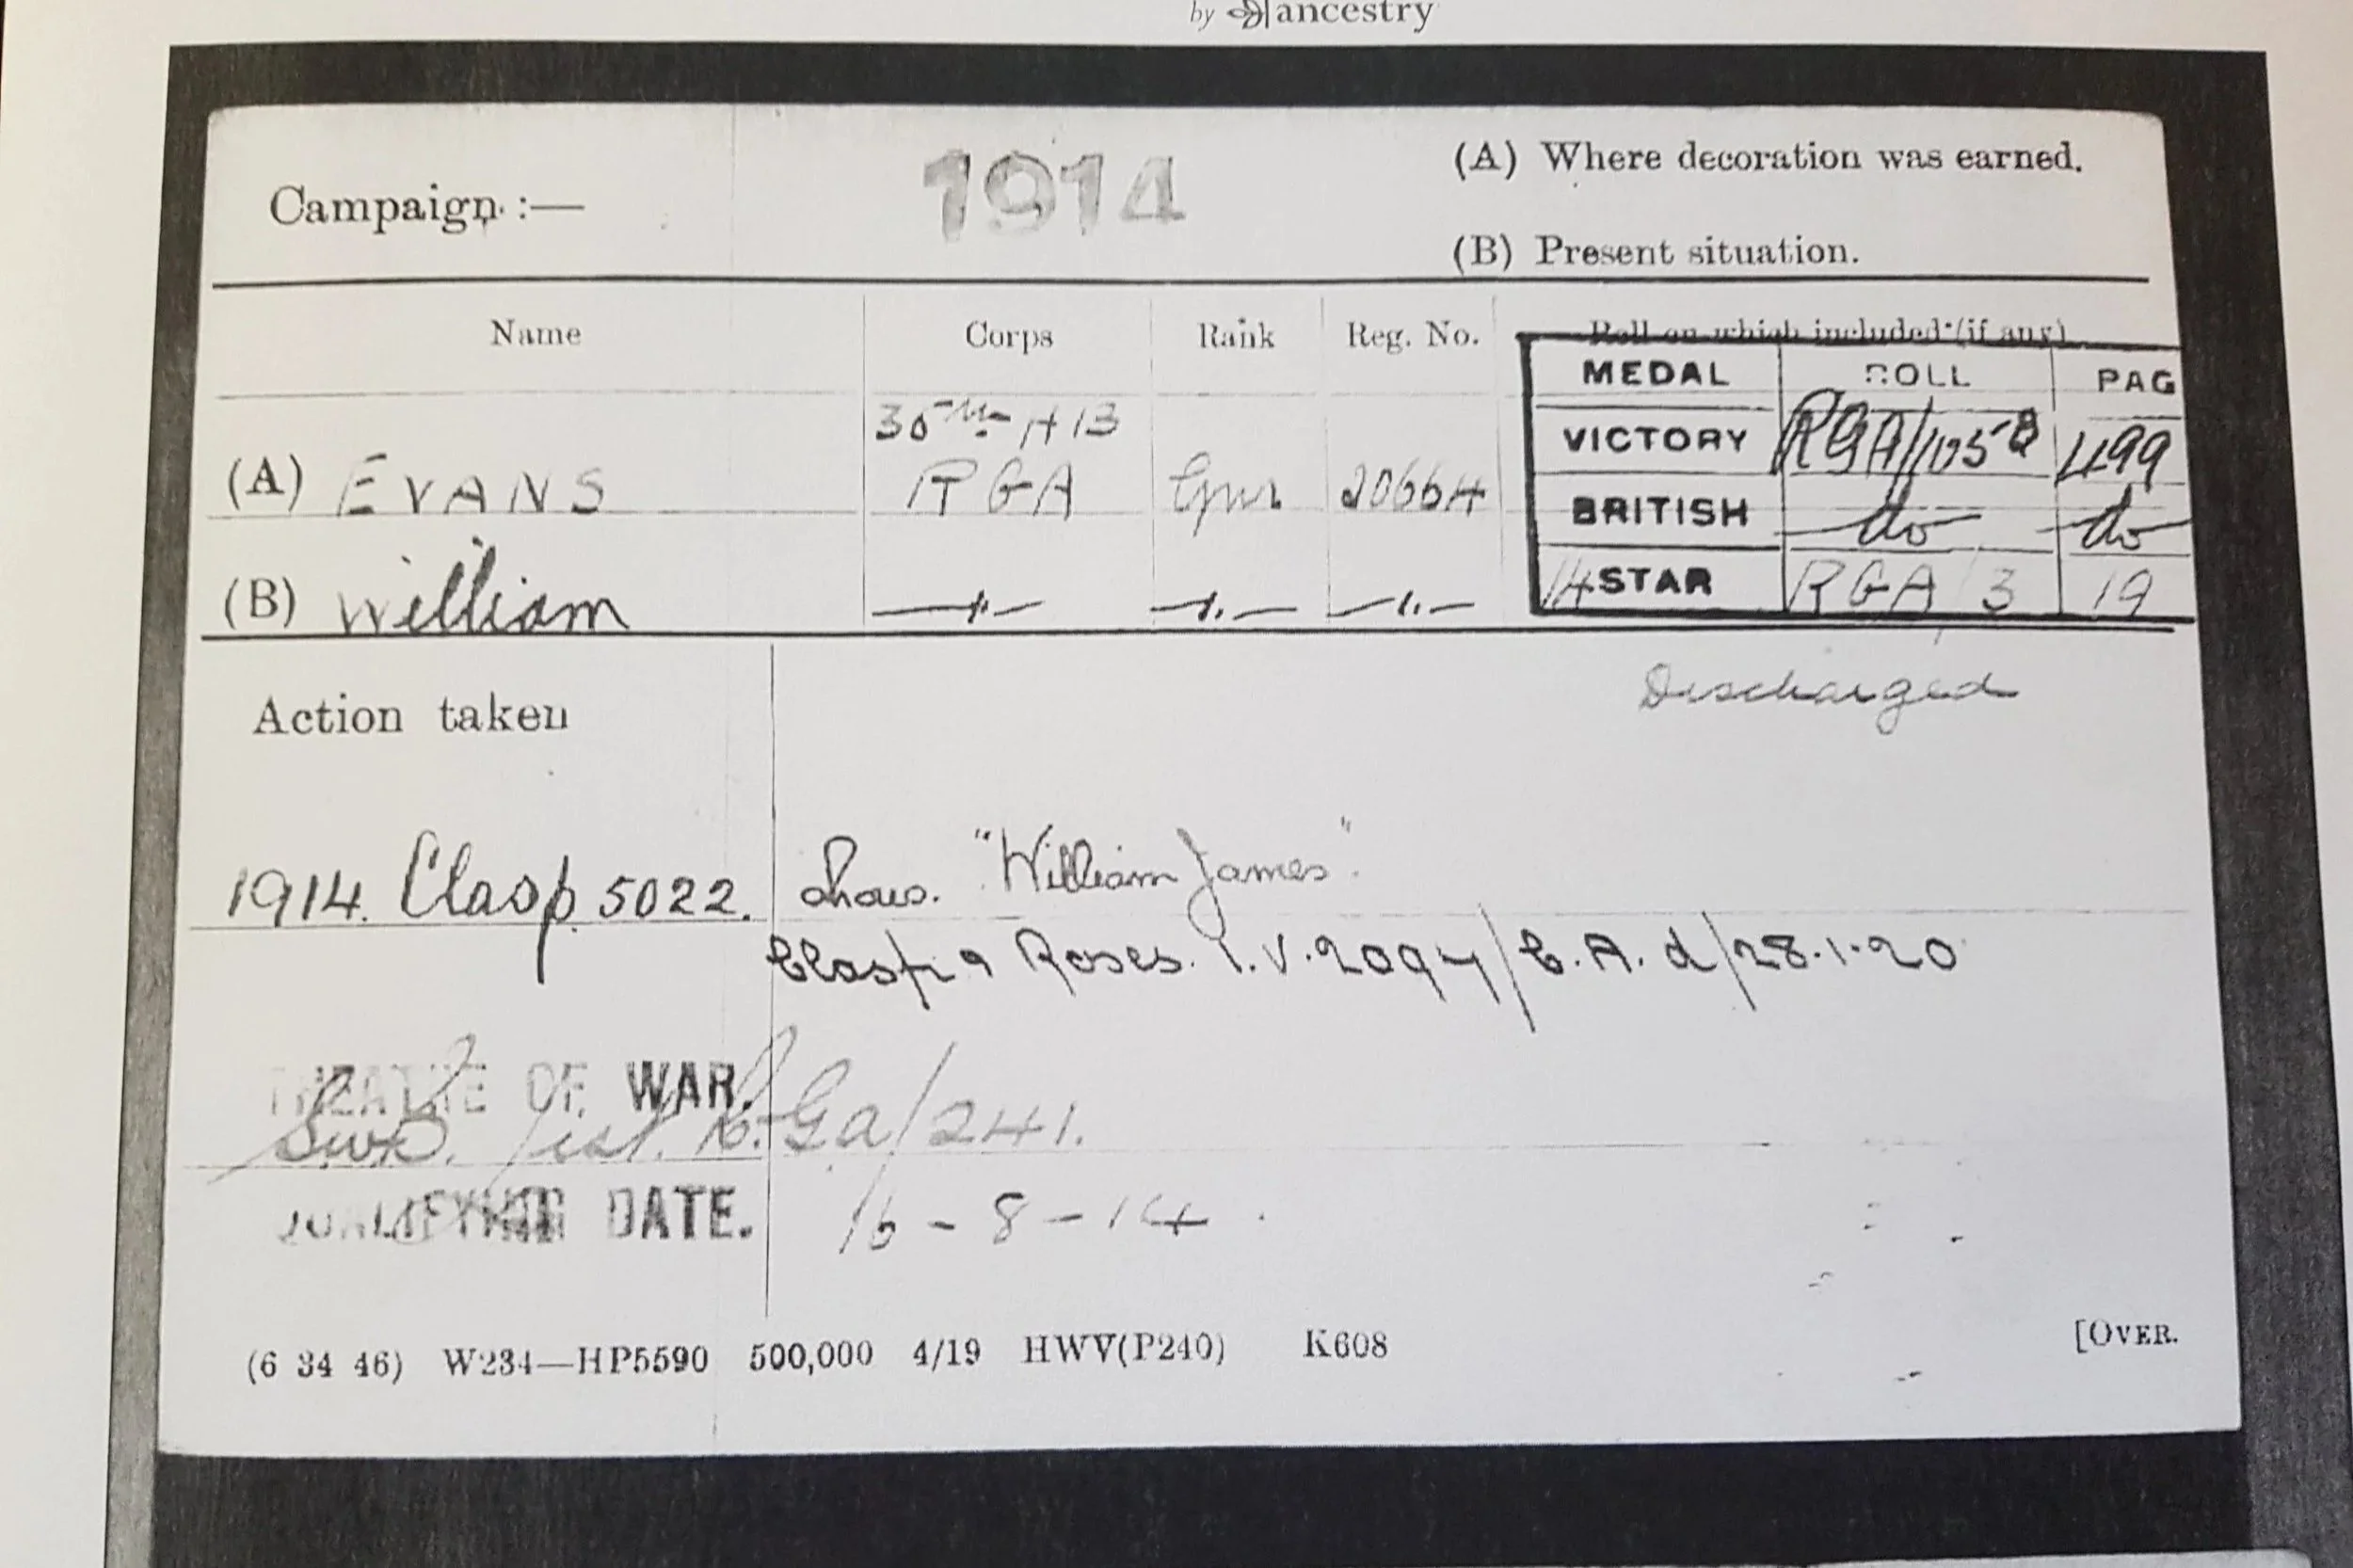 by ancestry
Campaign :— 1914
(A) Where decoration was earned.
(B) Present situation.
Name Corps Rank Reg. No. Roll on which included (if any)
MEDAL ROLL PAG
30th HB
(A) EVANS RGA Gnr 20664
VICTORY RGA/105B 499
BRITISH do do
(B) William —"— —"— —"—
14 STAR RGA 3 19
Discharged
Action taken
1914. Clasp 5022. "William James".
Clasp & Roses. I.V. 2094/E.A. d/28.1.20
THEATRE OF WAR.
SWB. List. R.Ga/241.
QUALIFYING DATE. 16-8-14.
(6 34 46) W234—HP5590 500,000 4/19 HWV(P240) K608 [OVER.